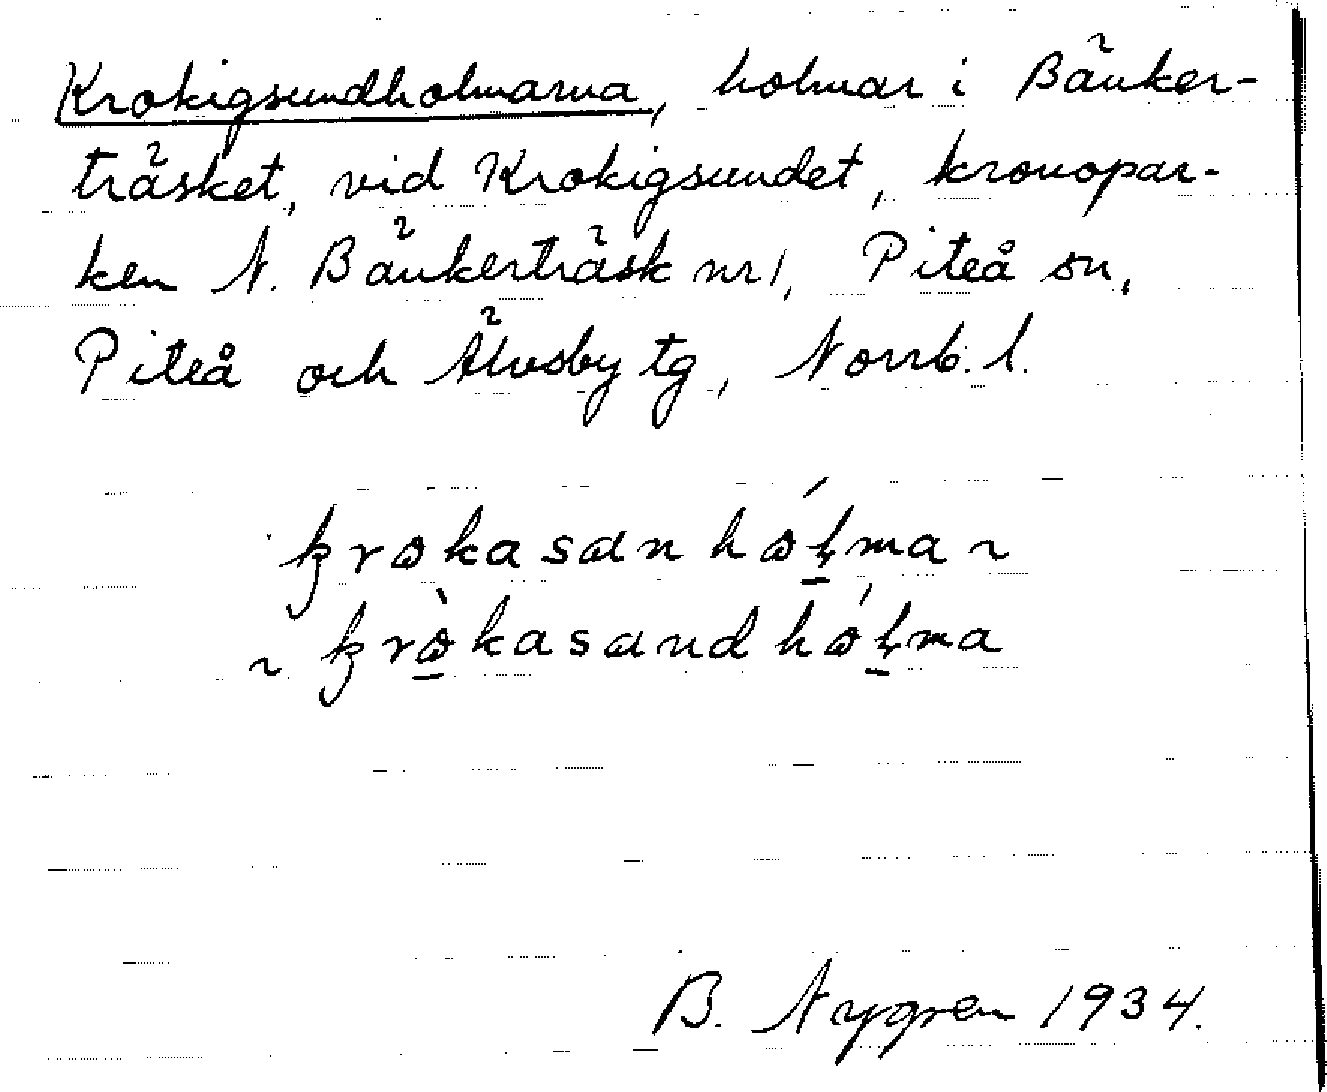 Krokigsundholmarna, holmar i Bänker-
träsket, vid Krokigsundet, kronopar-
ken N. Bänkerträsk nr 1, Piteå sn,
Piteå och Älvsby tg, Norrb. l.
krokasan hólma ~
~ kròkasand hólma
B. Nygren 1934.